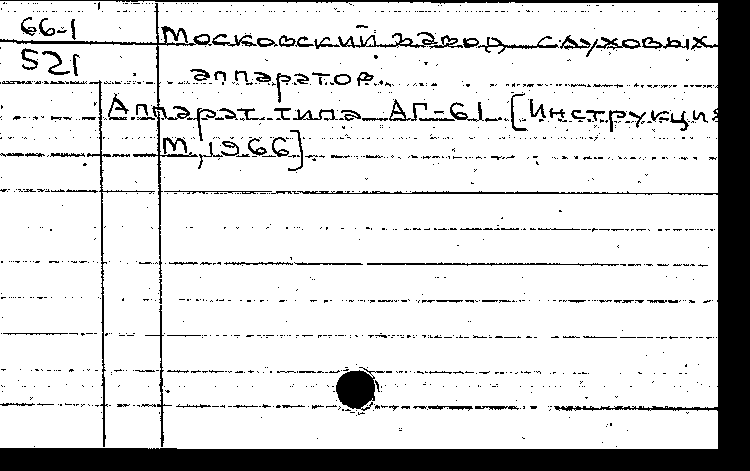 66-1
521
Московский завод слуховых
аппаратов.
Аппарат типа АГ-61 [Инструкция
М., 1966]